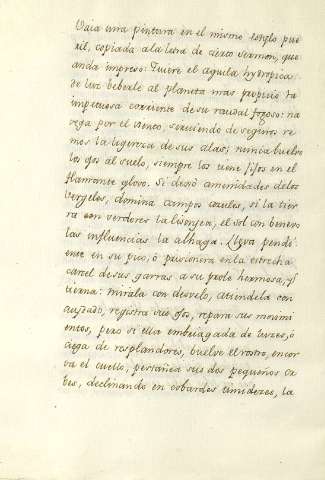 Vaia otra pintura en el mismo templo pue
ril, copiada a la letra de cierto sermon, que
anda impreso. Quiere el aguila hydropica
de luz beberle al planeta mas propicio la
impetuosa corriente de su raudal fogoso: na
vega por el viento, sirviendo de seguros re
mos la ligereza de sus alas, nunca buelve
los ojos al suelo, siempre los tiene fijos en el
flamante globo. Si desdó amenidades delos
vergeles, domina campos azules, si la tier
ra con verdores la lisongea, el sol con benevo
las influencias la alhaga. Lleva pendi
ente en su pico, ó prisionera en la estrecha
carcel de sus garras a su prole hermosa, y
tierna: mirala con desvelo, atiendela con
cuydado, registra sus ojos, repara sus movimi
entos, pero si ella embriagada de luzes, ó
ciega de resplandores, buelve el rostro, encor
va el cuello, pestañea sus dos pequeños ca
bes, declinando en cobardes timidezes, la